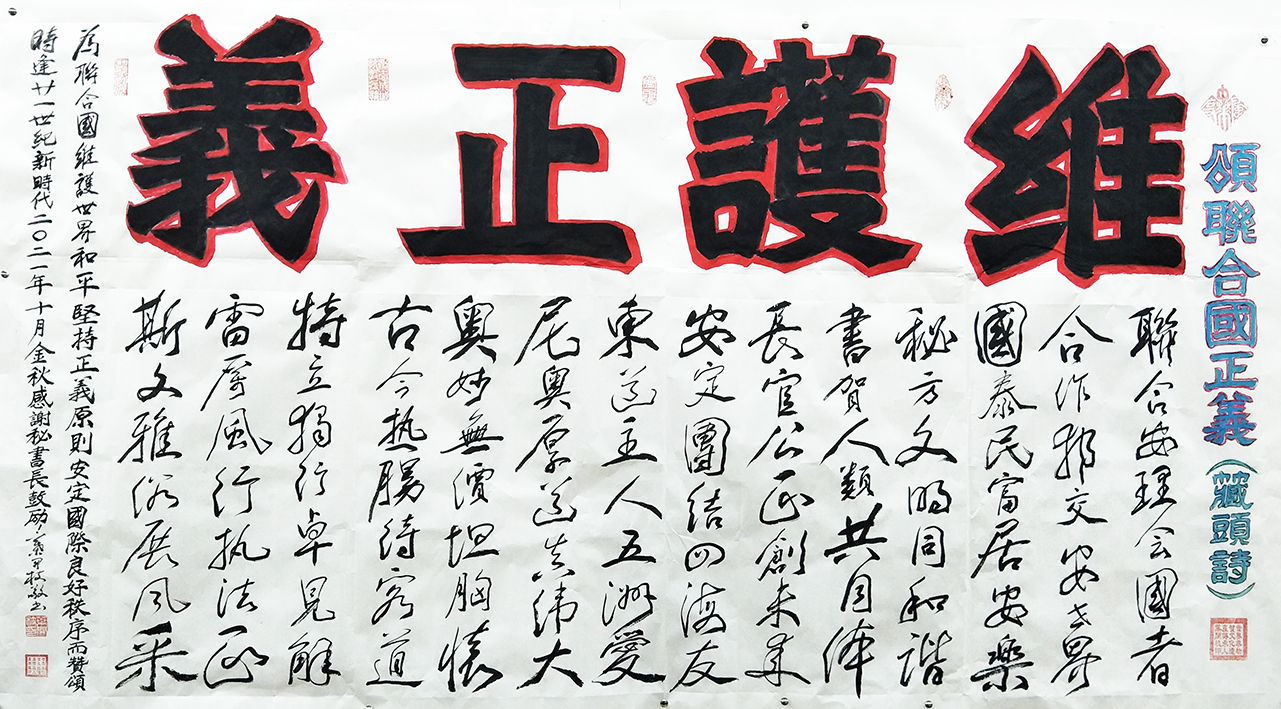 頌聯合國正義(藏頭詩)
维護正義
聯合安理会國者
合作邦交安世界
國泰民富居安樂
秘方文明同和諧
書賀人類共同体
長官公正創未来
安定團结四海友
東道主人五洲愛
尼奥厚道真偉大
奥妙無價坦胸懷
古今热腸待客道
特立獨行卓見解
雷厉風行执法正
斯文雅俗展风采
為聯合國維護世界和平堅持正義原則安定國際良好秩序而贊頌
時逢廿一世紀新時代二〇二一年十月金秋感謝秘書長鼓励